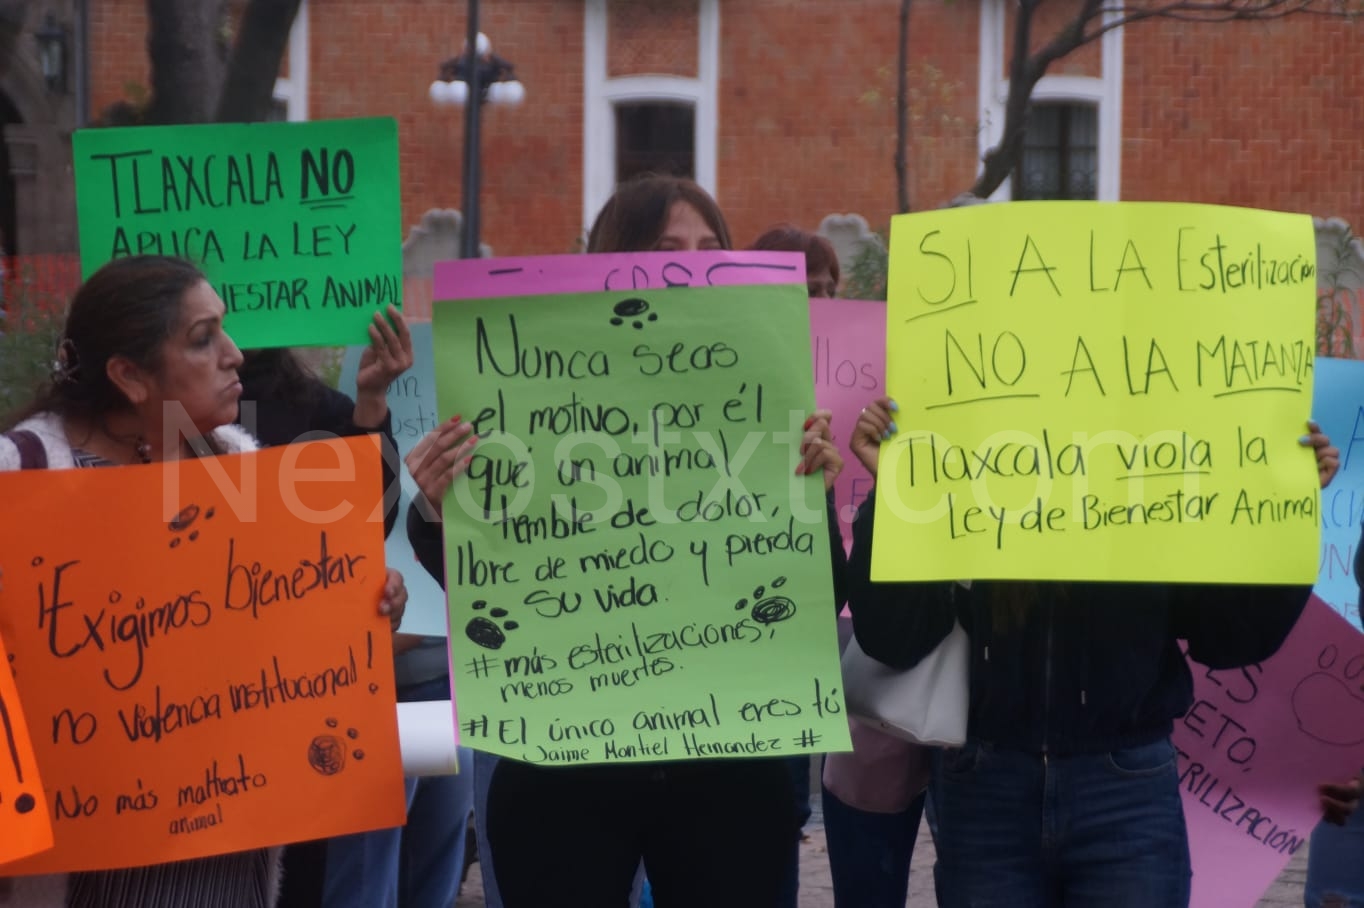 TLAXCALA NO
APLICA LA LEY
NESTAR ANIMAL
SI A LA Esterilización
NO A LA MATANZA
Tlaxcala viola la
Ley de Bienestar Animal
Nunca seas
el motivo, por él
que un animal
temble de dolor,
llore de miedo y pierda
su vida.
#más esterilizaciones,
menos muertes.
#El único animal eres tú
Jaime Montiel Hernandez #
¡Exigimos bienestar,
no violencia institucional!
No más maltrato
animal
llos
ETO,
RILIZACIÓN
Nexostxt.com